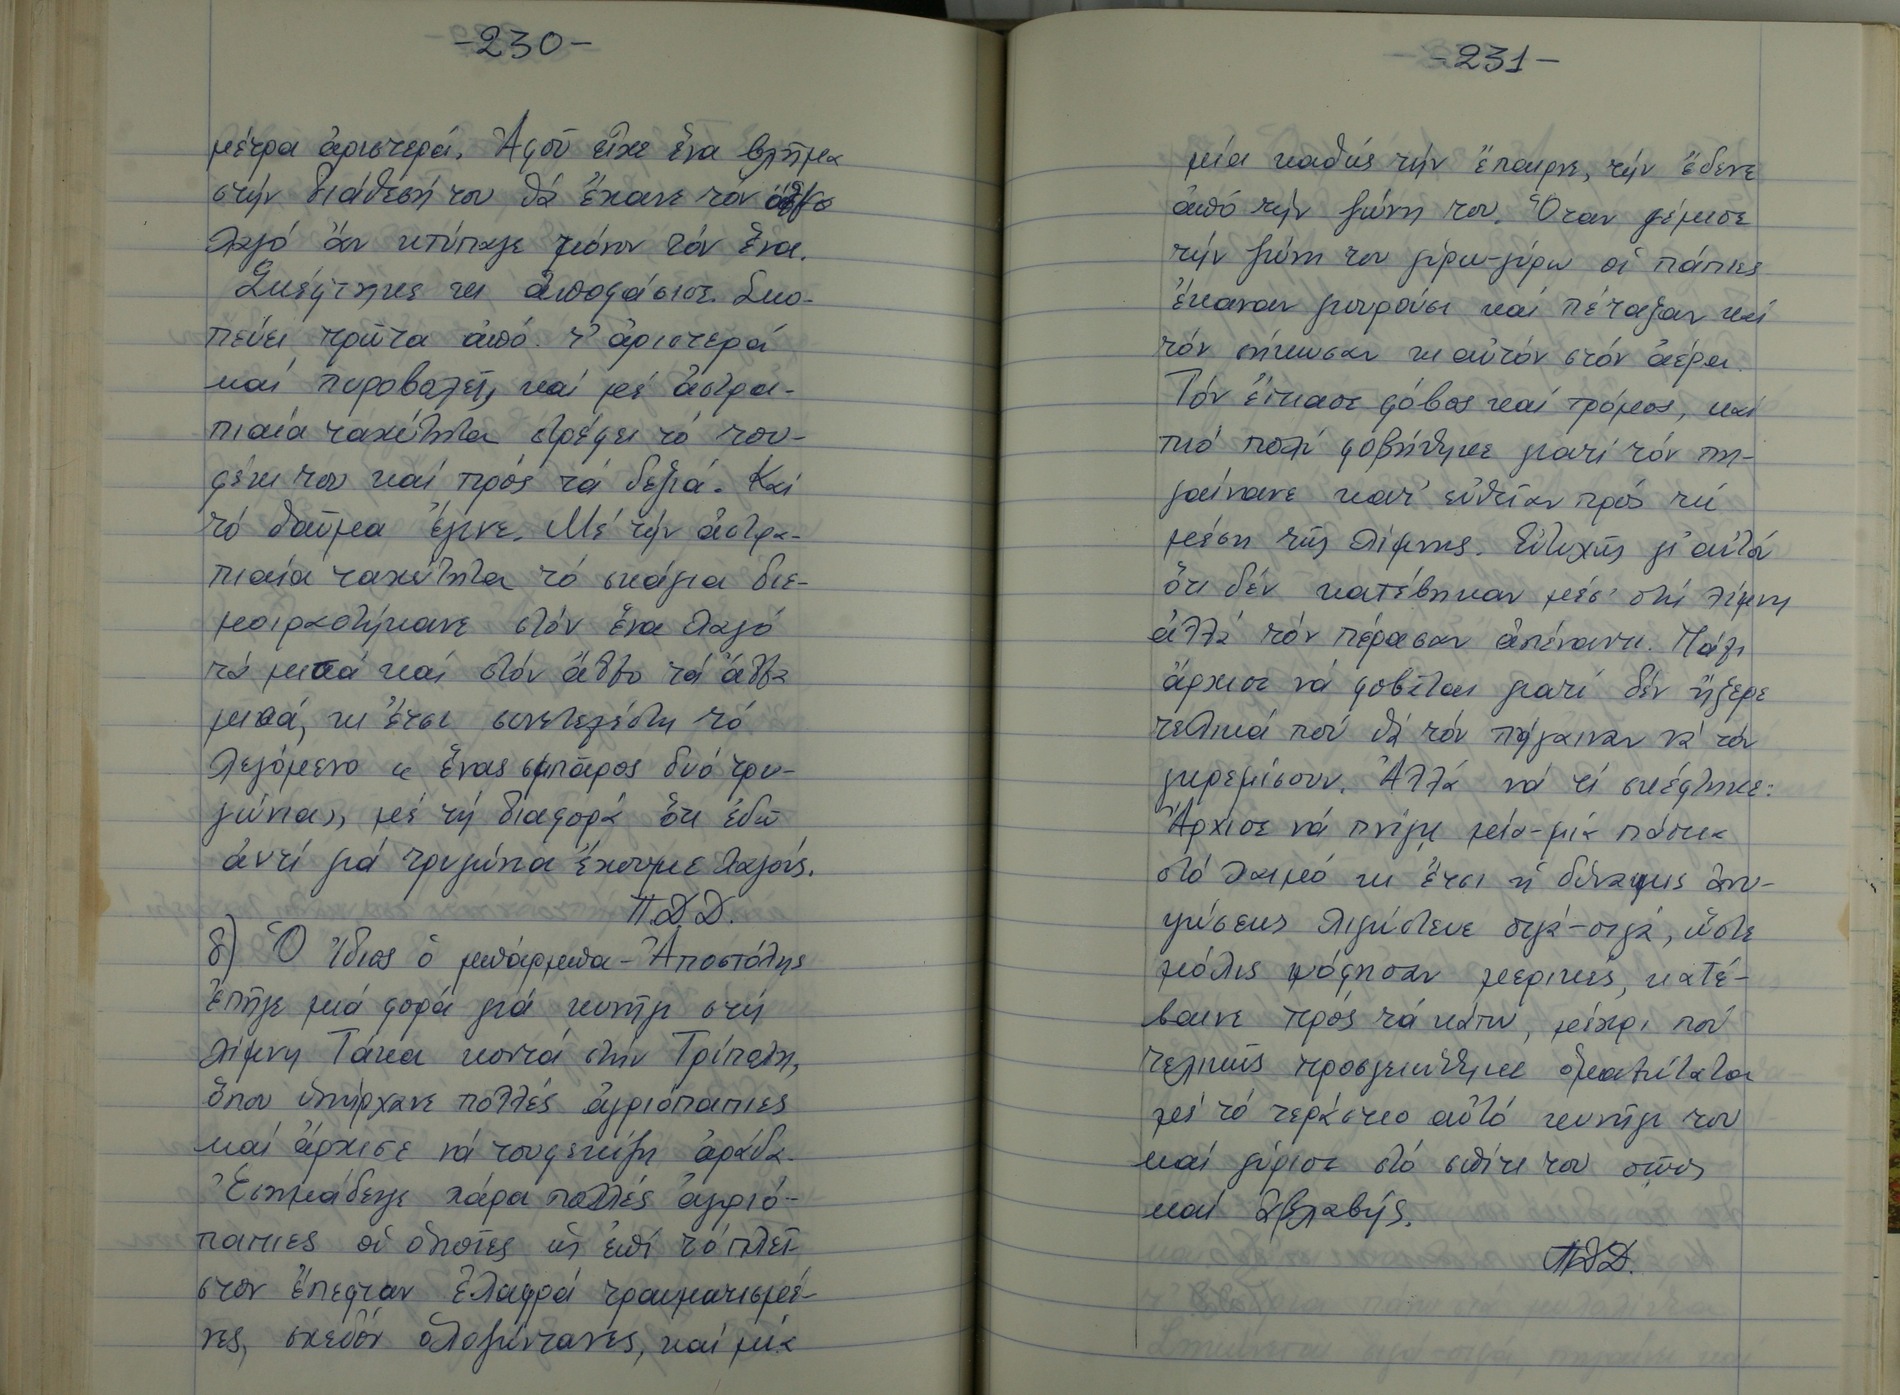 -230-
μέτρα ἀριστερά. Ἀφοῦ εἶχε ἕνα βλῆμα
στήν διάθεσή του θά ἔχανε τόν ἄλλο
λαγό ἄν κτύπαγε μόνον τόν ἕνα.
Σκέφτηκε κι ἀποφάσισε. Σκο-
πεύει πρῶτα ἀπό τ' ἀριστερά
καί πυροβολεῖ, καί μέ ἀστρα-
πιαία ταχύτητα στρέφει τό του-
φέκι του καί πρός τά δεξιά. Καί
τό θαῦμα ἔγινε. Μέ τήν ἀστρα-
πιαία ταχύτητα τό σκάγια διε-
μοιραστήκανε στόν ἕνα λαγό
τά μισά καί στόν ἄλλο τά ἄλλα
μισά, κι ἔτσι συνετελέστη τό
λεγόμενο « ἕνας σμπᾶρος δυό τρυ-
γώνια», μέ τή διαφορά ὅτι ἐδῶ
ἀντί γιά τρυγώνια ἔχουμε λαγούς.
Π.Δ.Δ.
δ) Ὁ ἴδιος ὁ μπάρμπα-Ἀποστόλης
ἐπῆγε μιά φορά γιά κυνῆγι στή
λίμνη Τάκα κοντά στήν Τρίπολη,
ὅπου ὑπήρχανε πολλές ἀγριόπαπιες
καί ἄρχισε νά τουφεκίζη ἀράδα.
Ἐσημάδεψε πάρα πολλές ἀγριό-
παπιες οἱ ὁποῖες ὡς ἐπί τό πλεῖ-
στον ἔπεφταν ἐλαφρά τραυματισμέ-
νες, σχεδόν ὁλοζώντανες, καί μία
-231-
μία καθώς τήν ἔπαιρνε, τήν ἔδενε
ἀπό τήν ζώνη του. Ὅταν γέμισε
τήν ζώνη του γύρω-γύρω οἱ πάπιες
ἔκαναν γιουρούσι καί πέταξαν καί
τόν σήκωσαν κι αὐτόν στόν ἀέρα.
Τόν ἔπιασε φόβος καί τρόμος, καί
πιό πολύ φοβήθηκε γιατί τόν πη-
γαίνανε κατ' εὐθεῖαν πρός τή
μέση τῆς λίμνης. Εὐτυχῶς γι' αὐτόν
ὅτι δέν κατέβηκαν μέσ' στή λίμνη
ἀλλά τόν πέρασαν ἀπέναντι. Πάλι
ἄρχισε νά φοβᾶται γιατί δέν ἤξερε
τελικά ποῦ θά τόν πήγαιναν νά τόν
γκρεμίσουν. Ἀλλά νά τί σκέφτηκε:
Ἄρχισε νά πνίγη μία-μία πάπια
στό λαιμό κι ἔτσι ἡ δύναμις ἀνυ-
ψώσεως λιγόστευε σιγά-σιγά, ὥστε
μόλις ψόφησαν μερικές, κατέ-
βαινε πρός τά κάτω, μέχρι πού
τελικῶς προσγειώθηκε ὁμαλώτατα
μέ τό τεράστιο αὐτό κυνῆγι του
καί γύρισε στό σπίτι του σῶος
καί ἀβλαβής.
ΠΔΔ.